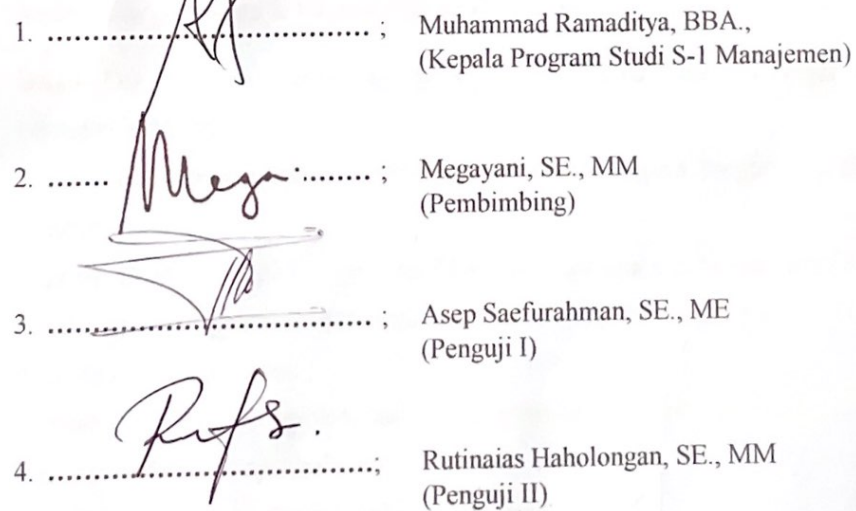 1. ............................................ ; Muhammad Ramaditya, BBA.,
(Kepala Program Studi S-1 Manajemen)
2. ....... Mega ......... ; Megayani, SE., MM
(Pembimbing)
3. ............................................ ; Asep Saefurahman, SE., ME
(Penguji I)
4. ............................................; Rutinaias Haholongan, SE., MM
(Penguji II)